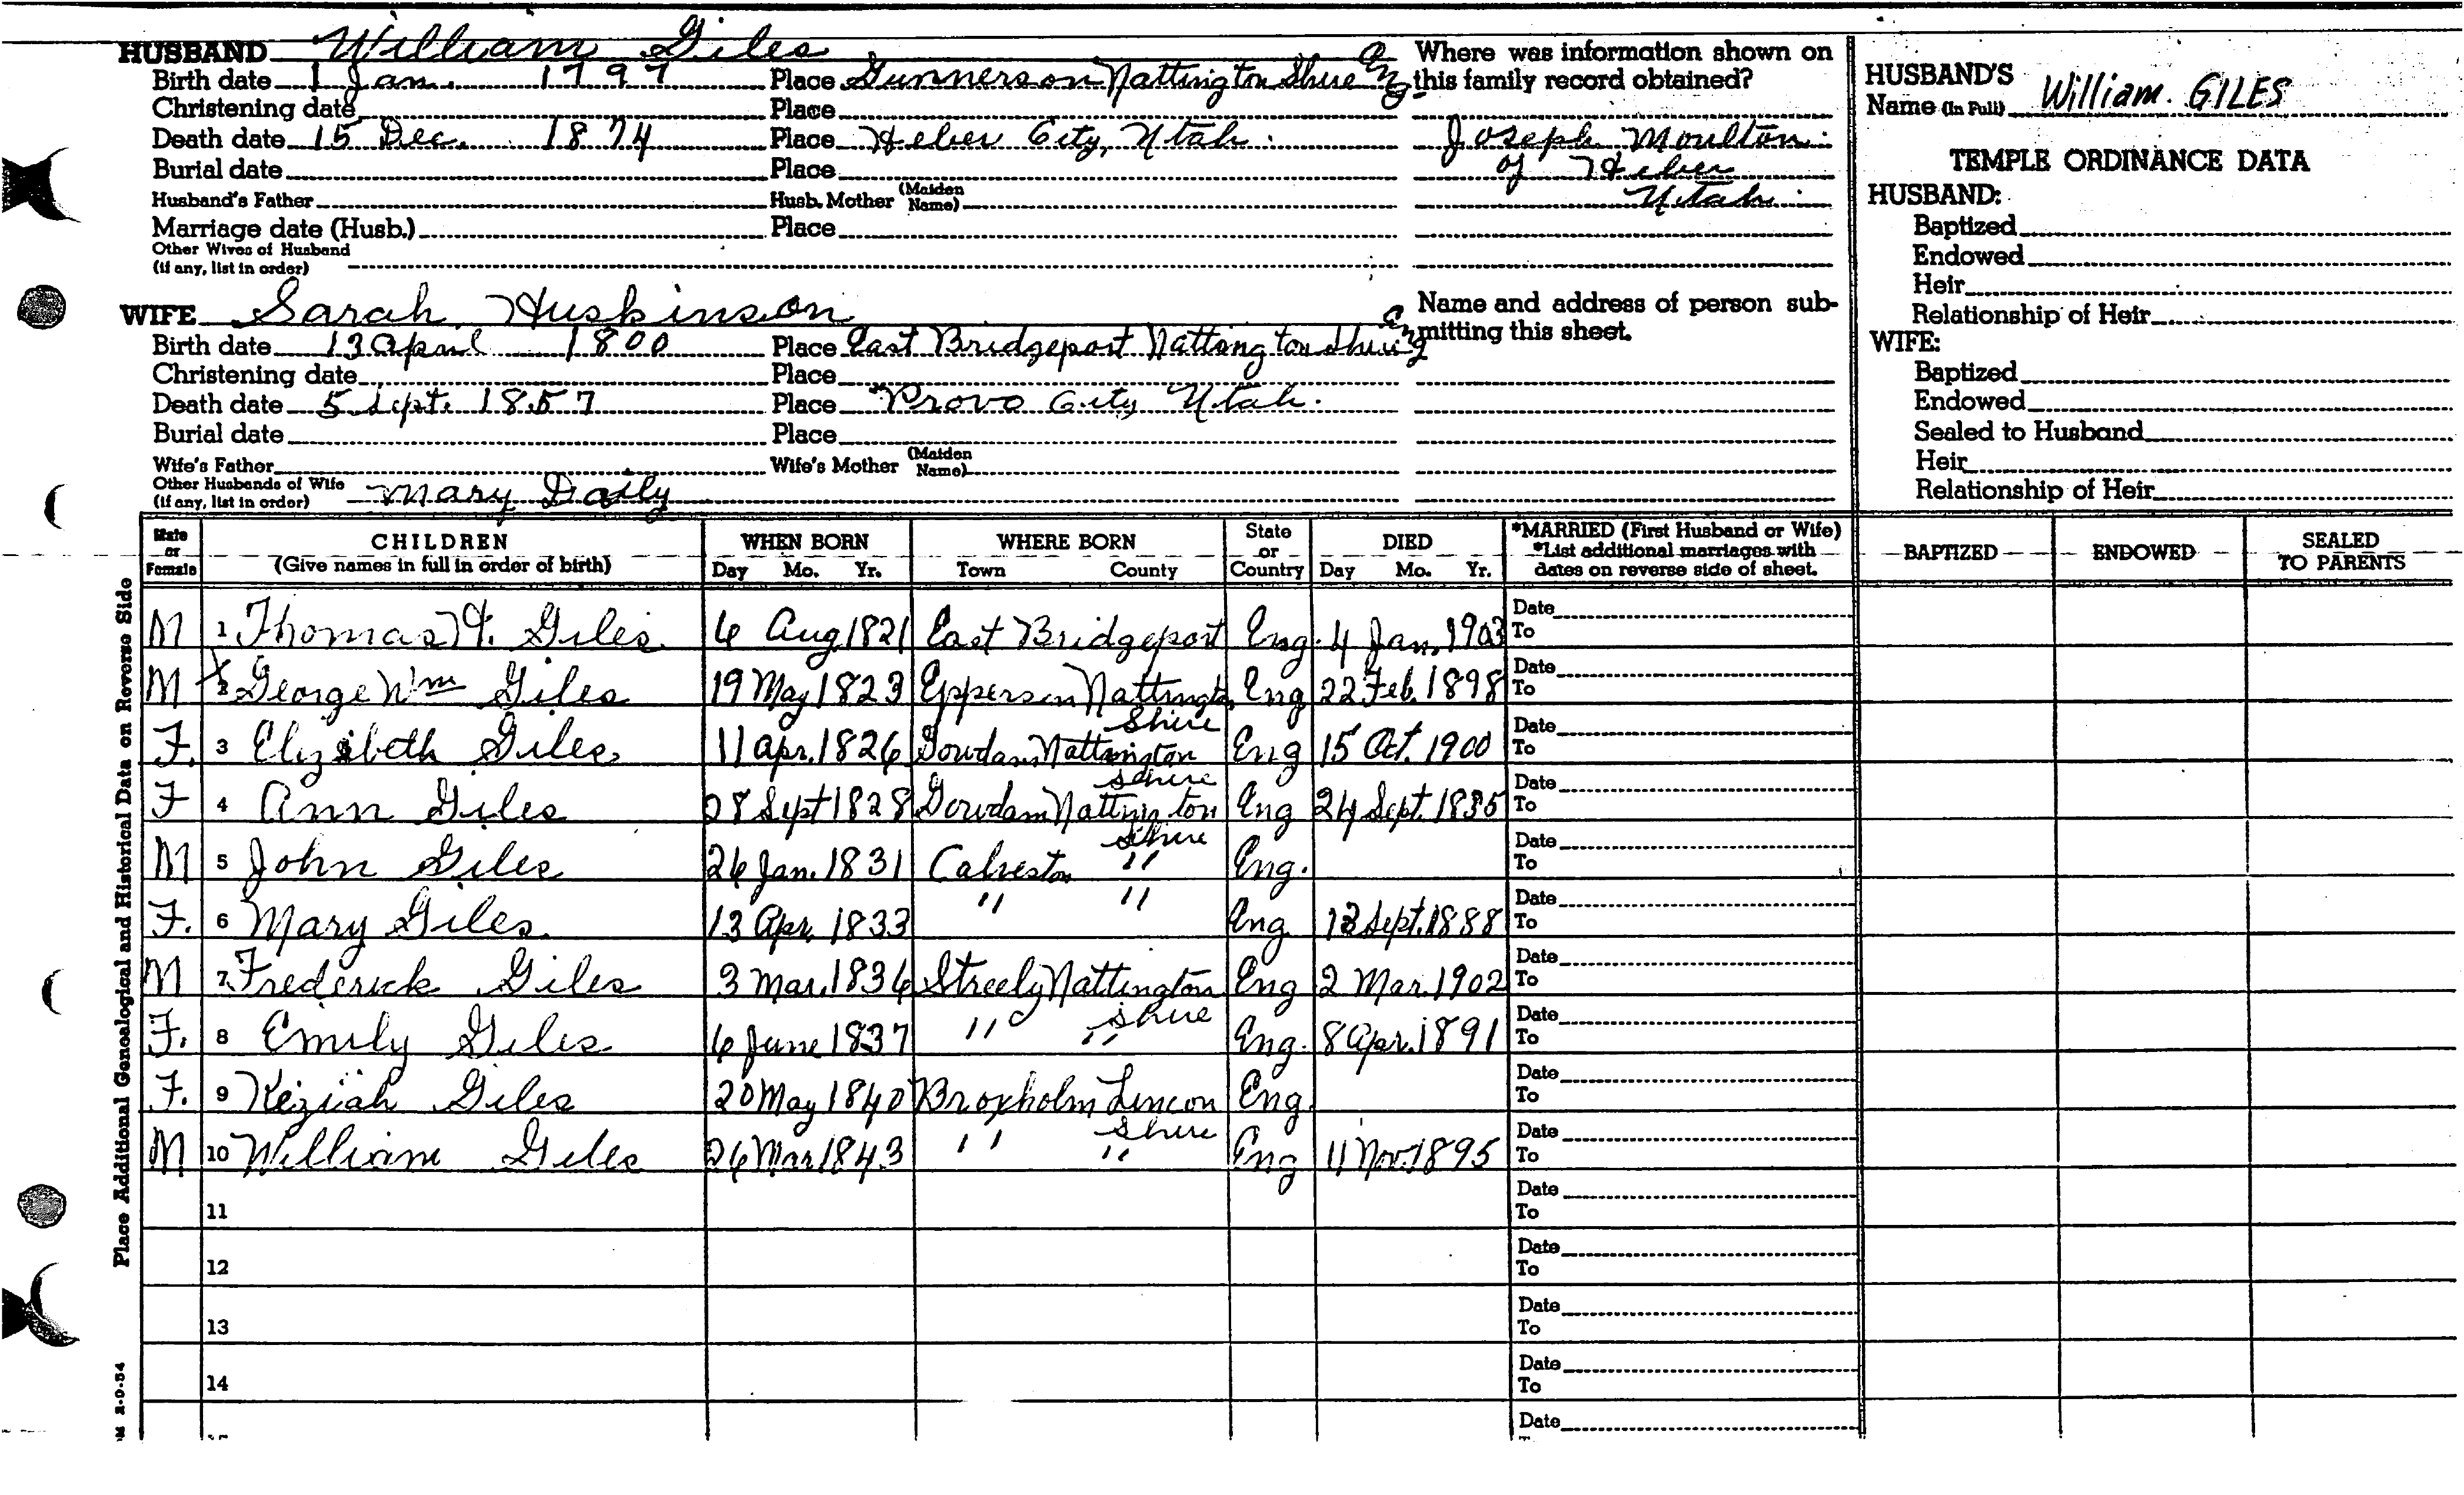 HUSBAND William Giles
Birth date 1 Jan. 1797 Place Gunnerson Nattington Shire Eng
Christening date Place
Death date 15 Dec. 1874 Place Heber City, Utah.
Burial date Place
Husband's Father Husb. Mother (Maiden Name)
Marriage date (Husb.) Place
Other Wives of Husband
(if any, list in order)
Where was information shown on
this family record obtained?
Joseph Moulton
of Heber
Utah
WIFE Sarah Huskinson
Birth date 13 April 1800 Place East Bridgeport Nattington Shire Eng
Christening date Place
Death date 5 Sept. 1857 Place Provo City Utah.
Burial date Place
Wife's Father Wife's Mother (Maiden Name)
Other Husbands of Wife
(if any, list in order) Mary Daily
Name and address of person sub-
mitting this sheet.
HUSBAND'S
Name (In Full) William. GILES
TEMPLE ORDINANCE DATA
HUSBAND:
Baptized
Endowed
Heir
Relationship of Heir
WIFE:
Baptized
Endowed
Sealed to Husband
Heir
Relationship of Heir
Male or Female
CHILDREN
(Give names in full in order of birth)
WHEN BORN
Day Mo. Yr.
WHERE BORN
Town County
State or Country
DIED
Day Mo. Yr.
*MARRIED (First Husband or Wife)
*List additional marriages with
dates on reverse side of sheet.
BAPTIZED
ENDOWED
SEALED
TO PARENTS
M 1 Thomas H. Giles 6 Aug 1821 East Bridgeport Eng. 4 Jan. 1903 Date To
M 2 George Wm Giles 19 May 1823 Epperson Nattington Shire Eng 22 Feb. 1898 Date To
F. 3 Elizibeth Giles 11 Apr. 1826 Gowdam Nattington Shire Eng 15 Oct. 1900 Date To
F 4 Ann Giles 28 Sept 1828 Gowdam Nattington Shire Eng 24 Sept. 1835 Date To
M 5 John Giles 26 Jan. 1831 Calveston " Eng. Date To
F. 6 Mary Giles 13 Apr 1833 " " Eng Sept. 1888 Date To
M 7 Frederick Giles 3 Mar. 1836 Streely Nattington Shire Eng 2 Mar. 1902 Date To
F. 8 Emily Giles 6 June 1837 " " Eng. 8 Apr. 1891 Date To
F. 9 Keziah Giles 20 May 1840 Broxholm Lincon Shire Eng. Date To
M 10 William Giles 26 Mar 1843 " " Eng 11 Nov. 1895 Date To
11 Date To
12 Date To
13 Date To
14 Date To
Date
Place Additional Genealogical and Historical Data on Reverse Side